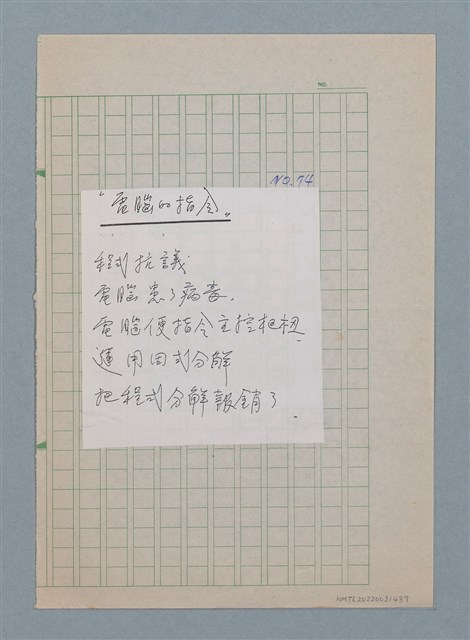 NO.
NO.74
"電腦的指令"
程式抗議
電腦患了病毒.
電腦便指令主控枢纽
運用因式分解
把程式分解報銷了
NMTL20220031489